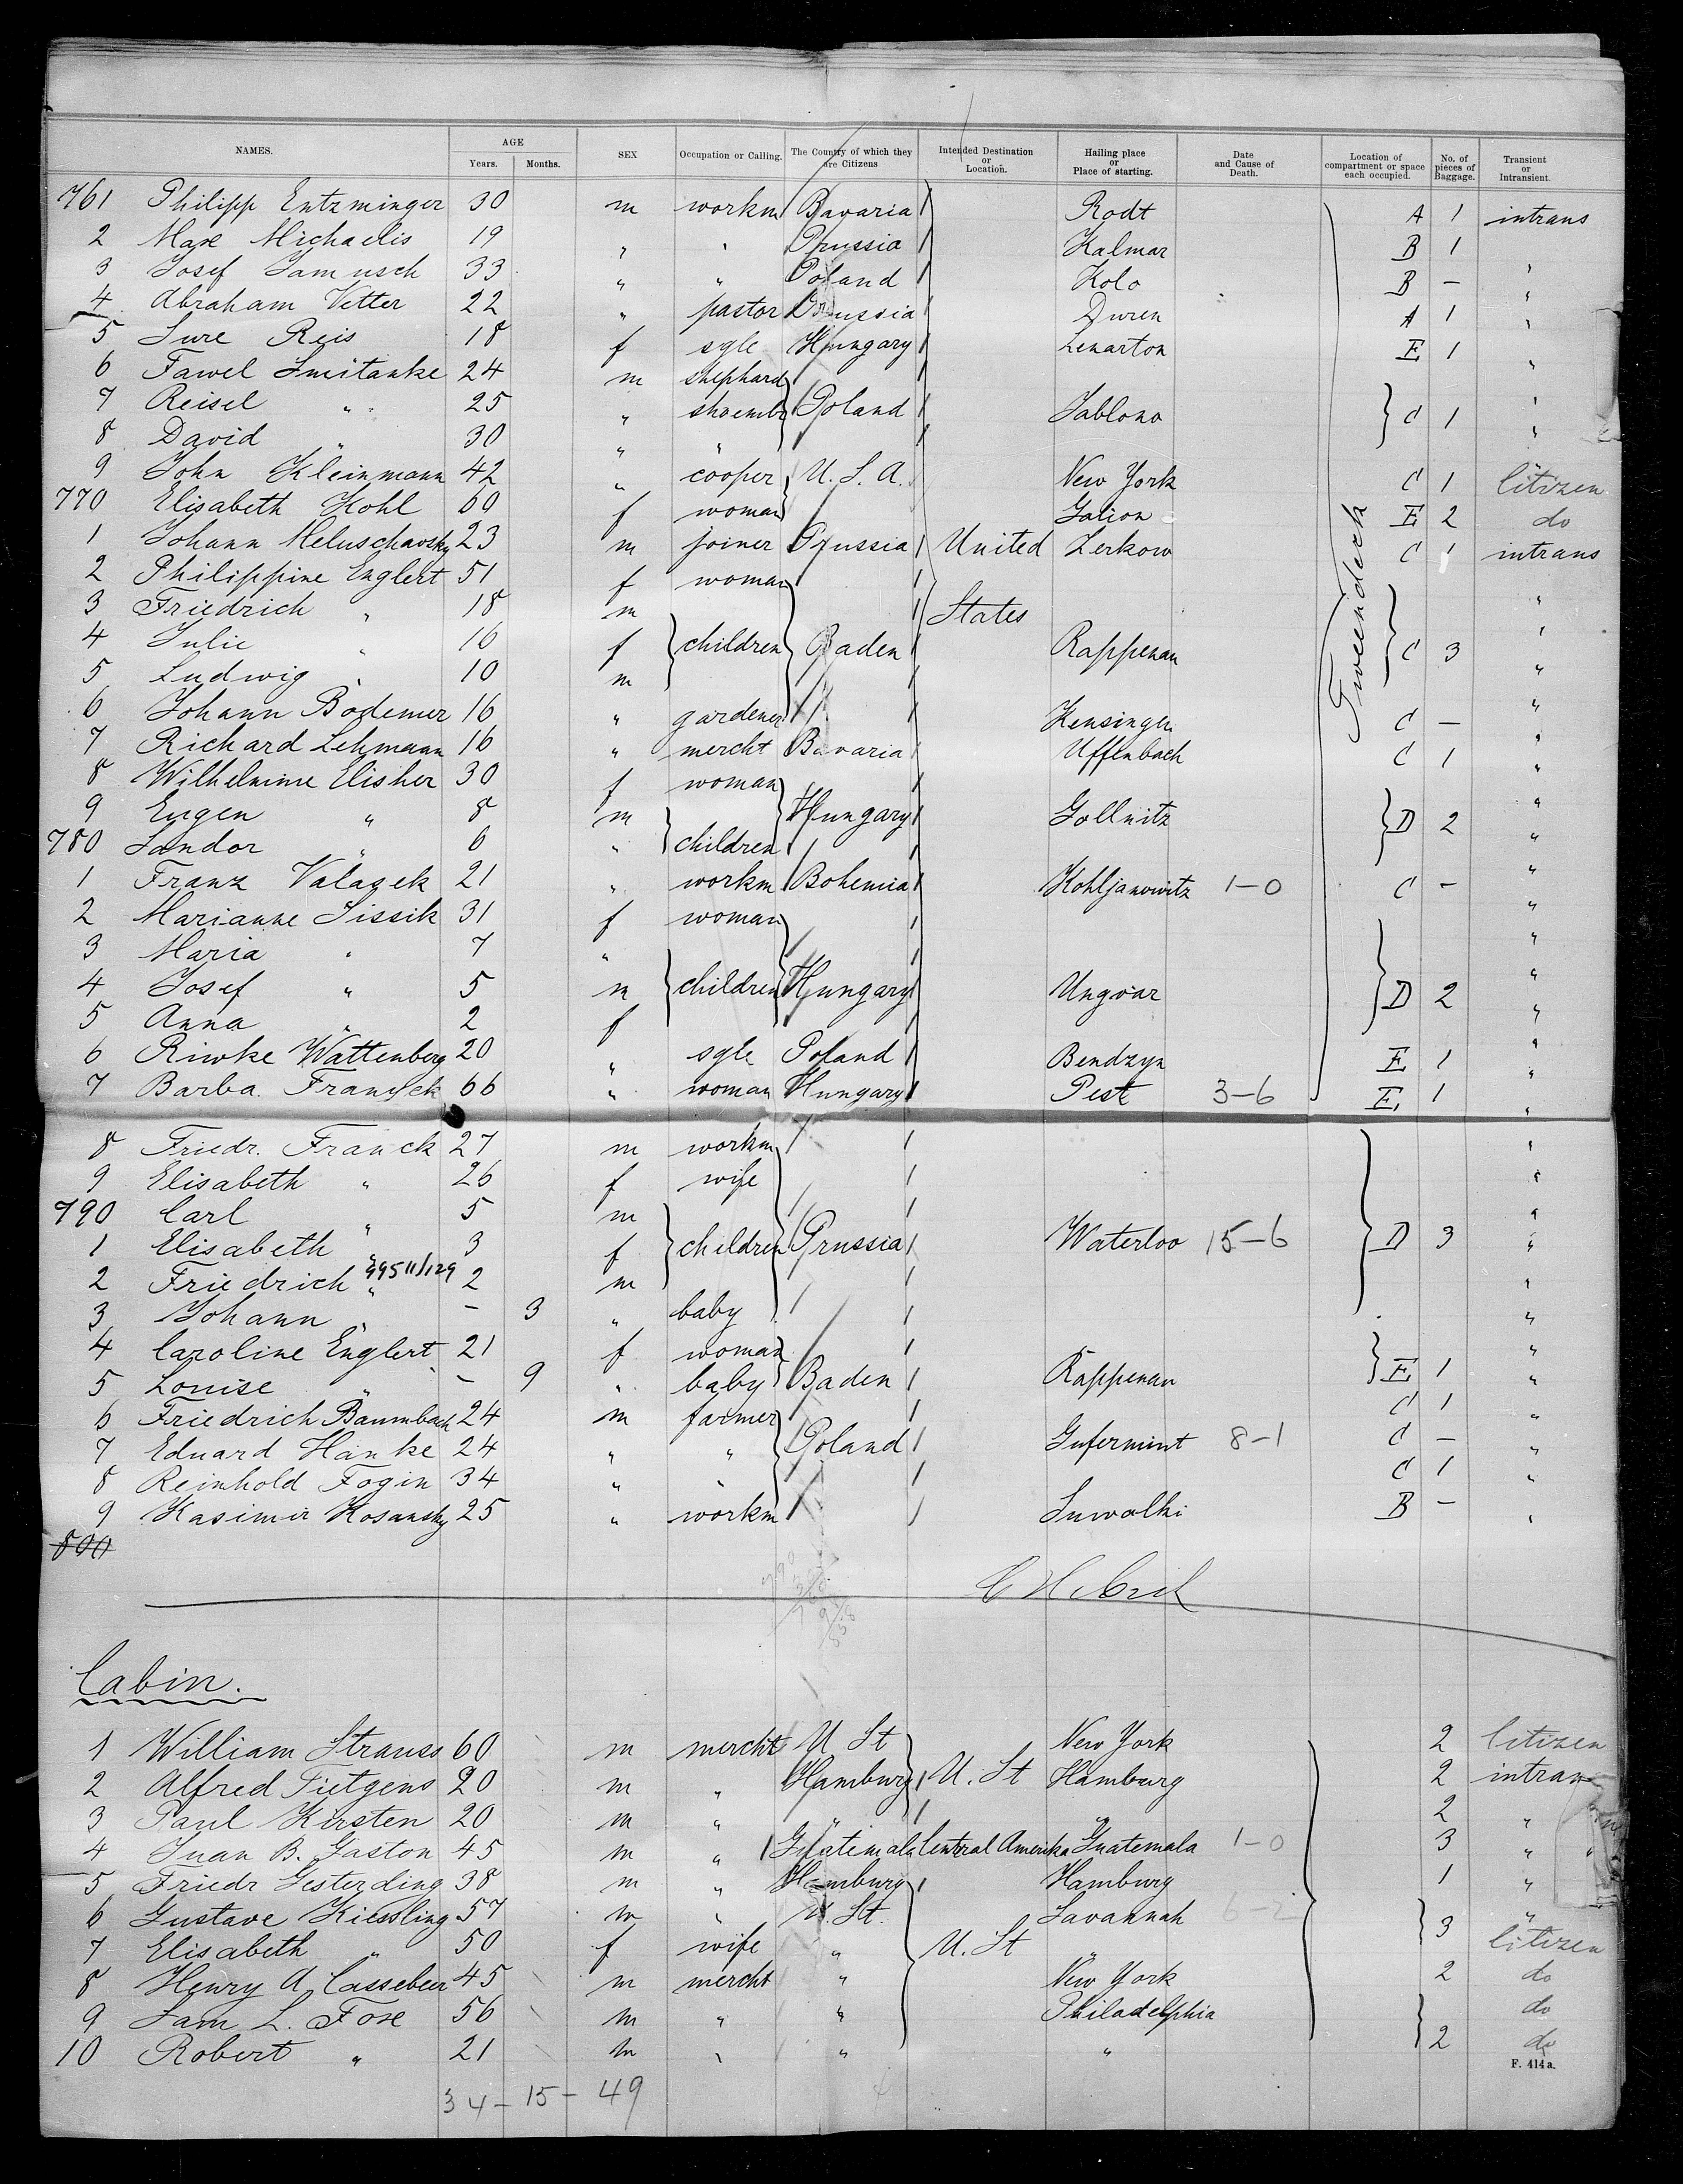 NAMES. AGE Years. Months. SEX Occupation or Calling. The Country of which they are Citizens Intended Destination or Location. Hailing place or Place of starting. Date and Cause of Death. Location of compartment or space each occupied. No. of pieces of Baggage. Transient or Intransient.
761 Philipp Entzminger 30 m workm Bavaria Rodt A 1 intrans
2 Max Michaelis 19 " " Prussia Kalmar B 1 "
3 Josef Jamusch 33 " " Poland Kolo B – "
4 Abraham Vetter 22 " pastor Prussia Duren A 1 "
5 Sure Reis 18 f sgle Hungary Lenarton E 1 "
6 Fawel Smitanke 24 m shephard "
7 Reisel " 25 " shoemk Poland Jablono C 1 "
8 David " 30 " " "
9 John Kleinmann 42 " cooper U. S. A. New York C 1 Citizen
770 Elisabeth Kohl 60 f woman Galion E 2 do
1 Johann Meluschavsky 23 m joiner Prussia United Zerkow C 1 intrans
2 Philippine Englert 51 f woman "
3 Friedrich " 18 m States "
4 Julie " 16 f children Baden Rappenau C 3 "
5 Ludwig " 10 m "
6 Johann Bodemer 16 " gardener Kensingen C – "
7 Richard Lehmann 16 " mercht Bavaria Uffenbach C 1 "
8 Wilhelmine Elisher 30 f woman "
9 Eugen " 8 m Hungary Gollnitz D 2 "
780 Sandor " 6 " children "
1 Franz Valasek 21 " workm Bohemia Kohljanowitz 1–0 C – "
2 Marianne Sissik 31 f woman "
3 Maria " 7 " "
4 Josef " 5 m children Hungary Ungvar D 2 "
5 Anna " 2 f "
6 Riwke Wattenberg 20 " sgle Poland Bendzyn E 1 "
7 Barba. 66 " woman Hungary Pest 3–6 E 1 "
Tweendeck
8 Friedr. Franck 27 m workm "
9 Elisabeth " 26 f wife "
790 Carl " 5 m "
1 Elisabeth " 3 f children Prussia Waterloo 15–6 D 3 "
2 Friedrich " 99511/129 2 m "
3 Johann " – 3 " baby "
4 Caroline Englert 21 f woman "
5 Louise " – 9 " baby Baden Rappenau E 1 "
6 Friedrich Baumbach 24 m farmer C 1 "
7 Eduard Hanke 24 " " Poland Gufermint 8–1 C – "
8 Reinhold Fogin 34 " C 1 "
9 Kasimir Kosansky 25 " workm Suwalki B – "
800
Cabin.
1 William Strauss 60 m mercht U St New York 2 Citizen
2 Alfred Tietgens 20 m " Hamburg U. St Hamburg 2 intran
3 Paul Kirsten 20 m " " " 2 "
4 Juan B. Gaston 45 m " Guatemala Central Amerika Guatemala 1–0 3 "
5 Friedr Gesterding 38 m " Hamburg Hamburg 1 "
6 Gustave Kiessling 57 m " U. St. Savannah 6–2 3 "
7 Elisabeth " 50 f wife " U. St " Citizen
8 Henry A Cassebeer 45 m mercht " New York 2 do
9 Sam L. Fox 56 m " " Philadelphia do
10 Robert " 21 m " " " 2 do
F. 414 a.
34 – 15 – 49